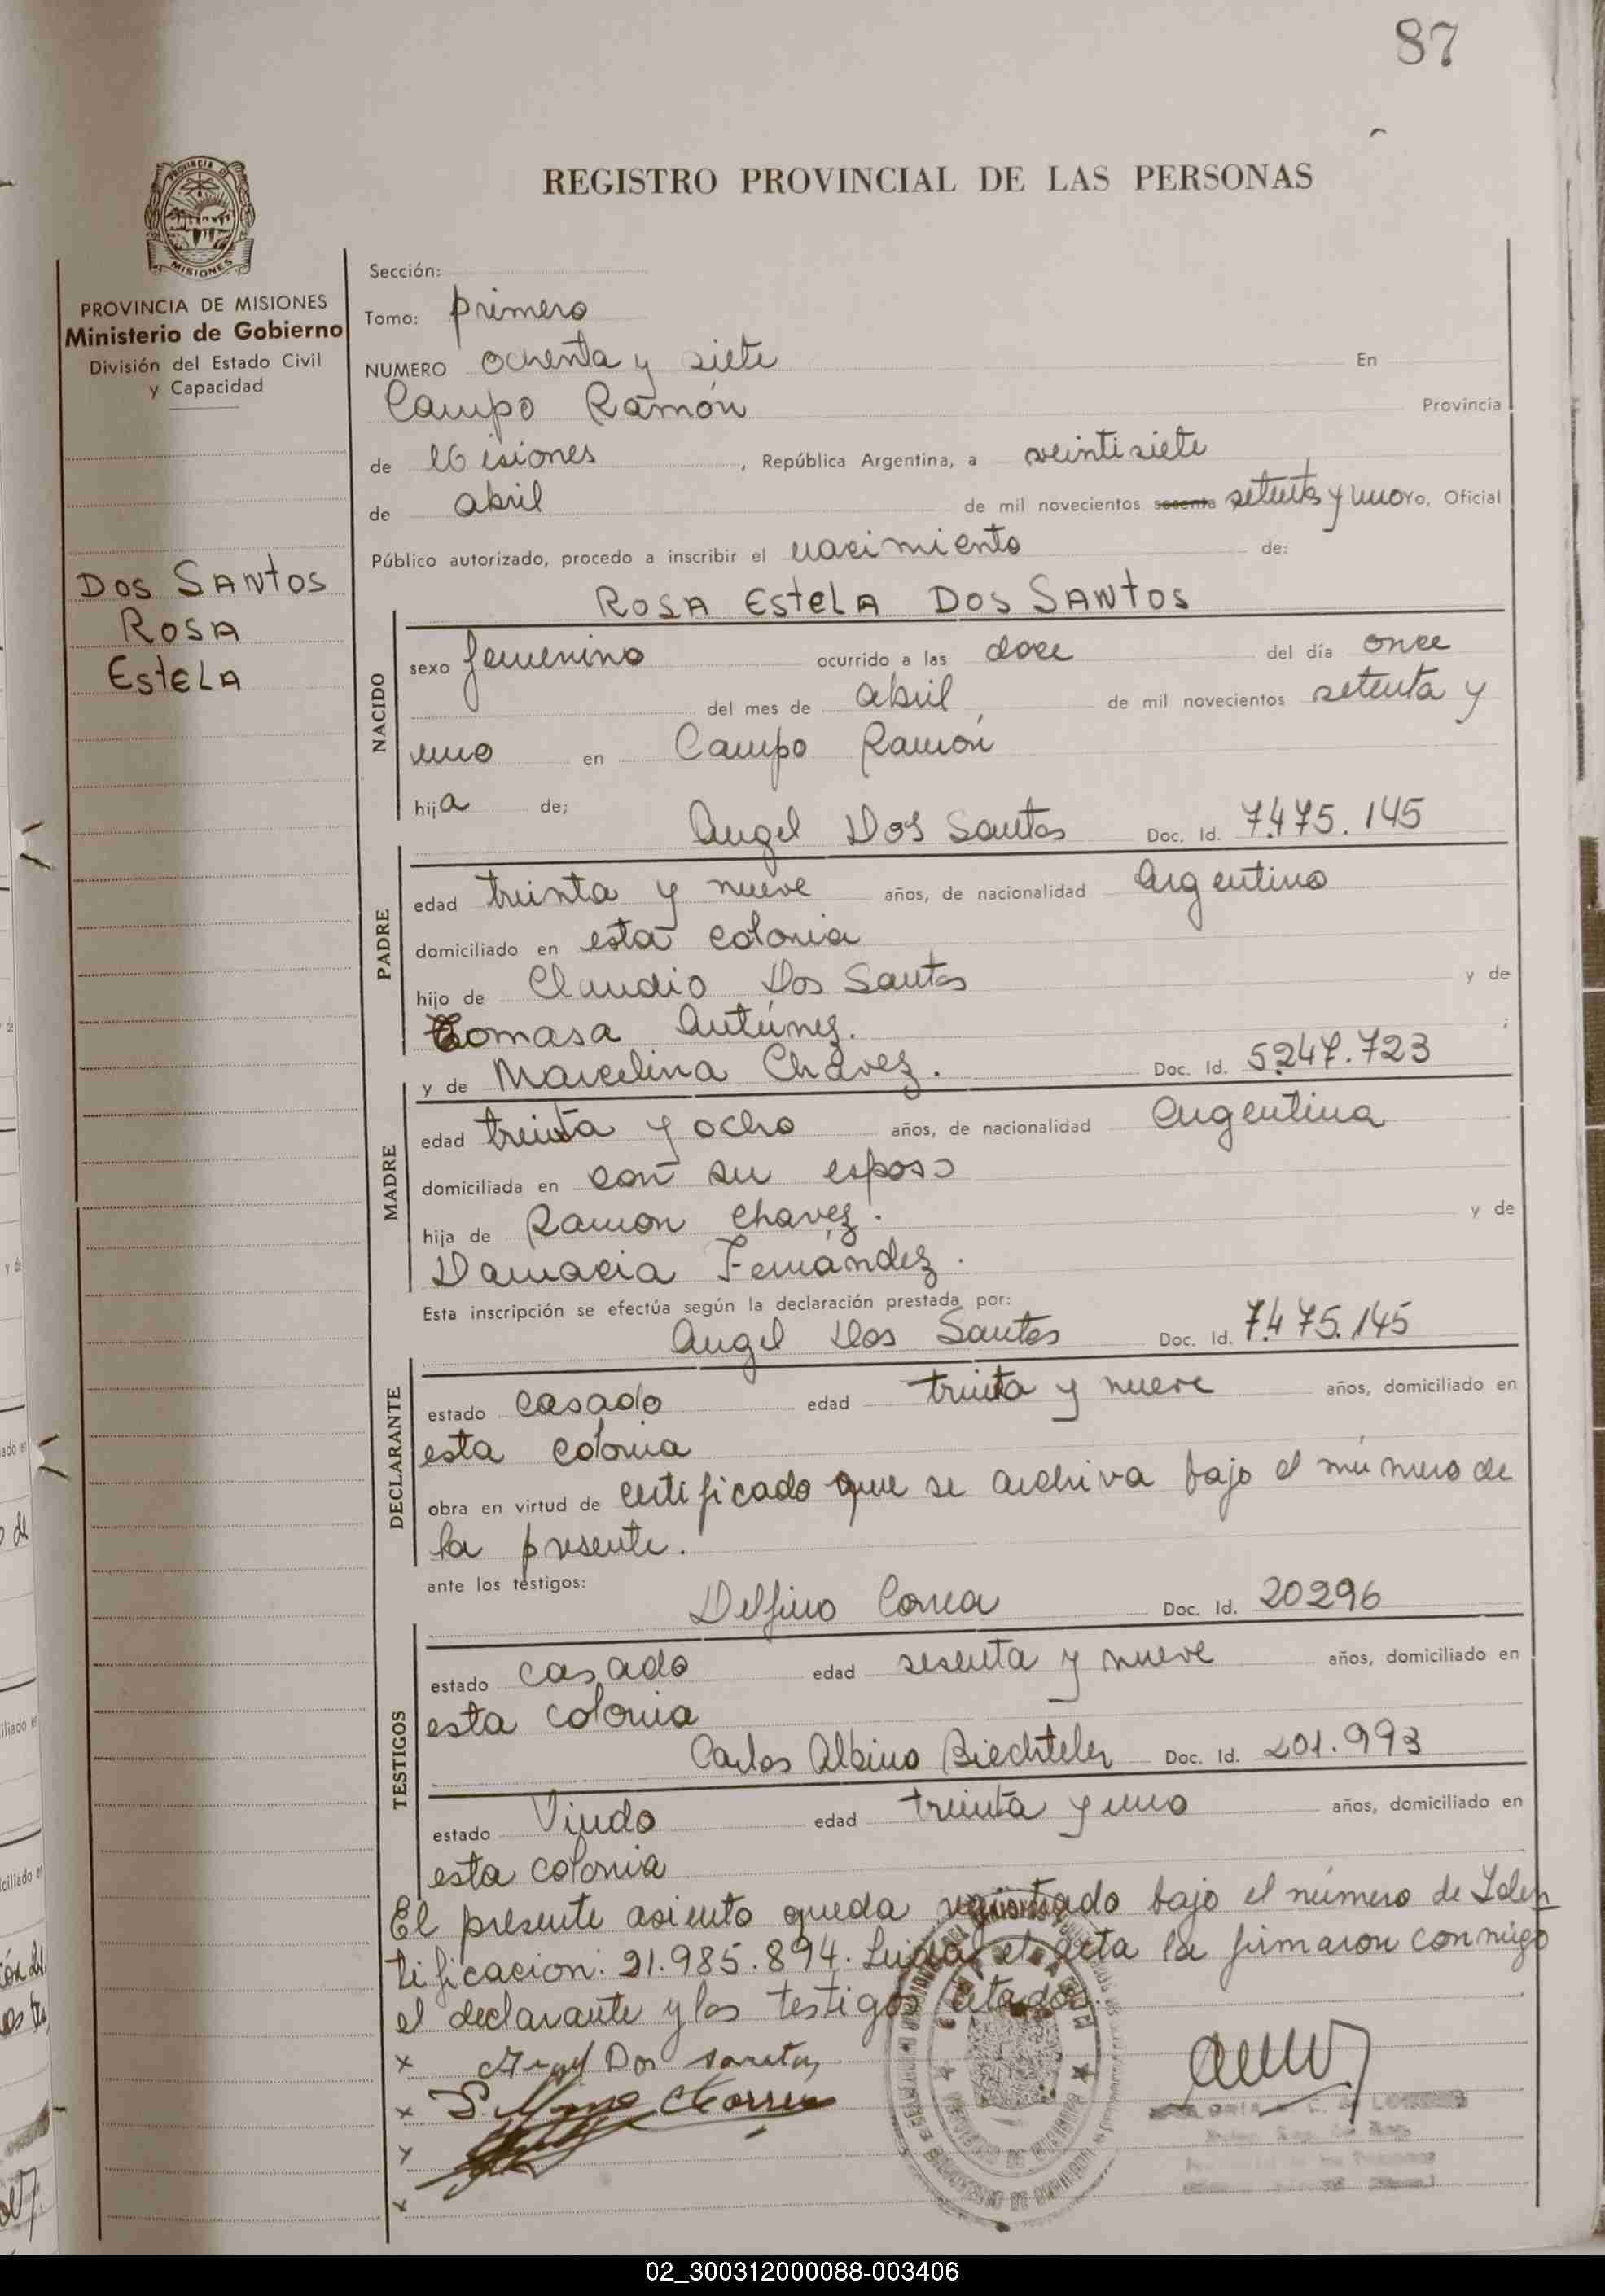 87
REGISTRO PROVINCIAL DE LAS PERSONAS
PROVINCIA DE MISIONES
Ministerio de Gobierno
División del Estado Civil
y Capacidad
Dos Santos
Rosa
Estela
Sección:
Tomo: primero
NUMERO ochenta y siete En
Campo Ramón Provincia
de Misiones, República Argentina, a veintisiete
de abril de mil novecientos sesenta setenta y uno Yo, Oficial
Público autorizado, procedo a inscribir el nacimiento de:
Rosa Estela Dos Santos
NACIDO
sexo femenino ocurrido a las doce del día once
del mes de abril de mil novecientos setenta y
uno en Campo Ramón
hija de;
Angel Dos Santos Doc. Id. 7.475.145
PADRE
edad treinta y nueve años, de nacionalidad argentino
domiciliado en esta colonia
hijo de Claudio Dos Santos y de
Tomasa Antúnez.;
y de Marcelina Chávez. Doc. Id. 5.247.723
MADRE
edad treinta y ocho años, de nacionalidad argentina
domiciliada en con su esposo
hija de Ramon Chavez. y de
Damacia Fernández.
Esta inscripción se efectúa según la declaración prestada por:
Angel Dos Santos Doc. Id. 7.475.145
DECLARANTE
estado casado edad treinta y nueve años, domiciliado en
esta colonia
obra en virtud de certificado que se archiva bajo el número de
la presente.
ante los testigos:
Delfino Correa Doc. Id. 20296
TESTIGOS
estado casado edad sesenta y nueve años, domiciliado en
esta colonia
Carlos Albino Biechteler Doc. Id. 201.993
estado Viudo edad treinta y uno años, domiciliado en
esta colonia
El presente asiento queda registrado bajo el número de Iden
tificacion: 21.985.894. Leida el acta la firmaron conmigo
el declarante y los testigos citados.
x Angel Dos santos
x Correa
02_300312000088-003406